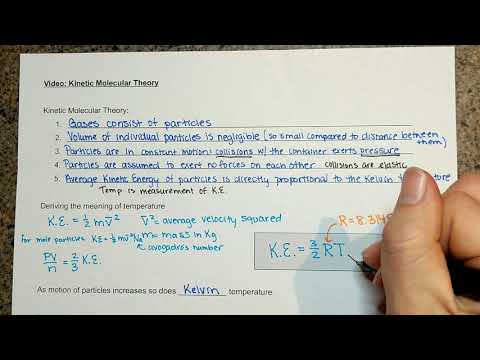 Video: Kinetic Molecular Theory
Kinetic Molecular Theory:
1. Gases consist of particles
2. Volume of individual particles is negligible (so small compared to distance between them)
3. Particles are in constant motion: collisions w/ the container exerts pressure
4. Particles are assumed to exert no forces on each other collisions are elastic
5. Average Kinetic Energy of particles is directly proportional to the Kelvin
Temp is measurement of K.E.
Deriving the meaning of temperature
K.E. = ½ m v̄² v̄² = average velocity squared
for mole particles KE = ½ m v̄² Na m = mass in Kg
avogadro's number
PV/n = 2/3 K.E.
R = 8.314
K.E. = 3/2 RT
As motion of particles increases so does Kelvin temperature